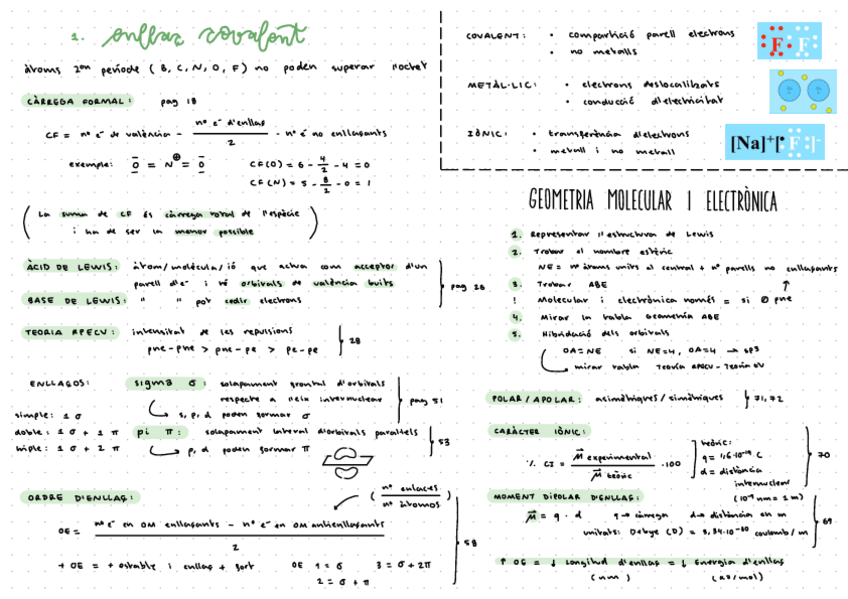 1. enllaç covalent
àtoms 2on període (B, C, N, O, F) no poden superar l'octet
CÀRREGA FORMAL: pag 18
CF = nº e⁻ de valència - nº e⁻ d'enllaç / 2 - nº e⁻ no enllaçants
exemple: O = N⊕ = O
CF(O) = 6 - 4/2 - 4 = 0
CF(N) = 5 - 8/2 - 0 = 1
(La suma de CF és càrrega total de l'espècie
i ha de ser la menor possible)
ÀCID DE LEWIS: àtom/molècula/ió que actua com acceptor d'un
parell d'e⁻ i té orbitals de valència buits
BASE DE LEWIS: " " pot cedir electrons
pag 26
TEORIA RPECV: intensitat de les repulsions
pne-pne > pne-pe > pe-pe
28
ENLLAÇOS:
simple: 1 σ
doble: 1 σ + 1 π
triple: 1 σ + 2 π
sigma σ: solapament frontal d'orbitals
respecte a l'eix internuclear
s, p, d poden formar σ
pag 51
pi π: solapament lateral d'orbitals paral·lels
p, d poden formar π
53
ORDRE D'ENLLAÇ:
(nº enlaces / nº àtomos)
OE = nº e⁻ en OM enllaçants - nº e⁻ en OM antienllaçants / 2
+ OE = + estable i enllaç + fort
OE 1 = σ 3 = σ + 2π
2 = σ + π
58
COVALENT: • compartició parell electrons
• no metalls
F F
METÀL·LIC: • electrons deslocalitzats
• conducció d'electricitat
IÒNIC: • transferència d'electrons
• metall i no metall
[Na]⁺[F]⁻
GEOMETRIA MOLECULAR I ELECTRÒNICA
1. Representar l'estructura de Lewis
2. Trobar el nombre estèric
NE = nº àtoms units al central + nº parells no enllaçants
3. Trobar ABE
! Molecular i electrònica només = si 0 pne
4. Mirar la tabla Geometria ABE
5. Hibridació dels orbitals
OA = NE si NE = 4, OA = 4 → sp3
mirar tabla Teoría RPECV - Teoría EV
POLAR/APOLAR: asimètriques/simètriques 71, 72
CARÀCTER IÒNIC:
% CI = μ experimental / μ teòric · 100
teòric:
q = 1,6·10⁻¹⁹ C
d = distància
internuclear
(10⁻⁹ nm = 1 m)
70
MOMENT DIPOLAR D'ENLLAÇ:
μ = q · d q → càrrega d → distància en m
unitats: Debye (D) = 3,34·10⁻³⁰ coulomb/m
69
↑ OE = ↓ Longitud d'enllaç = ↓ Energia d'enllaç
(nm) (kJ/mol)